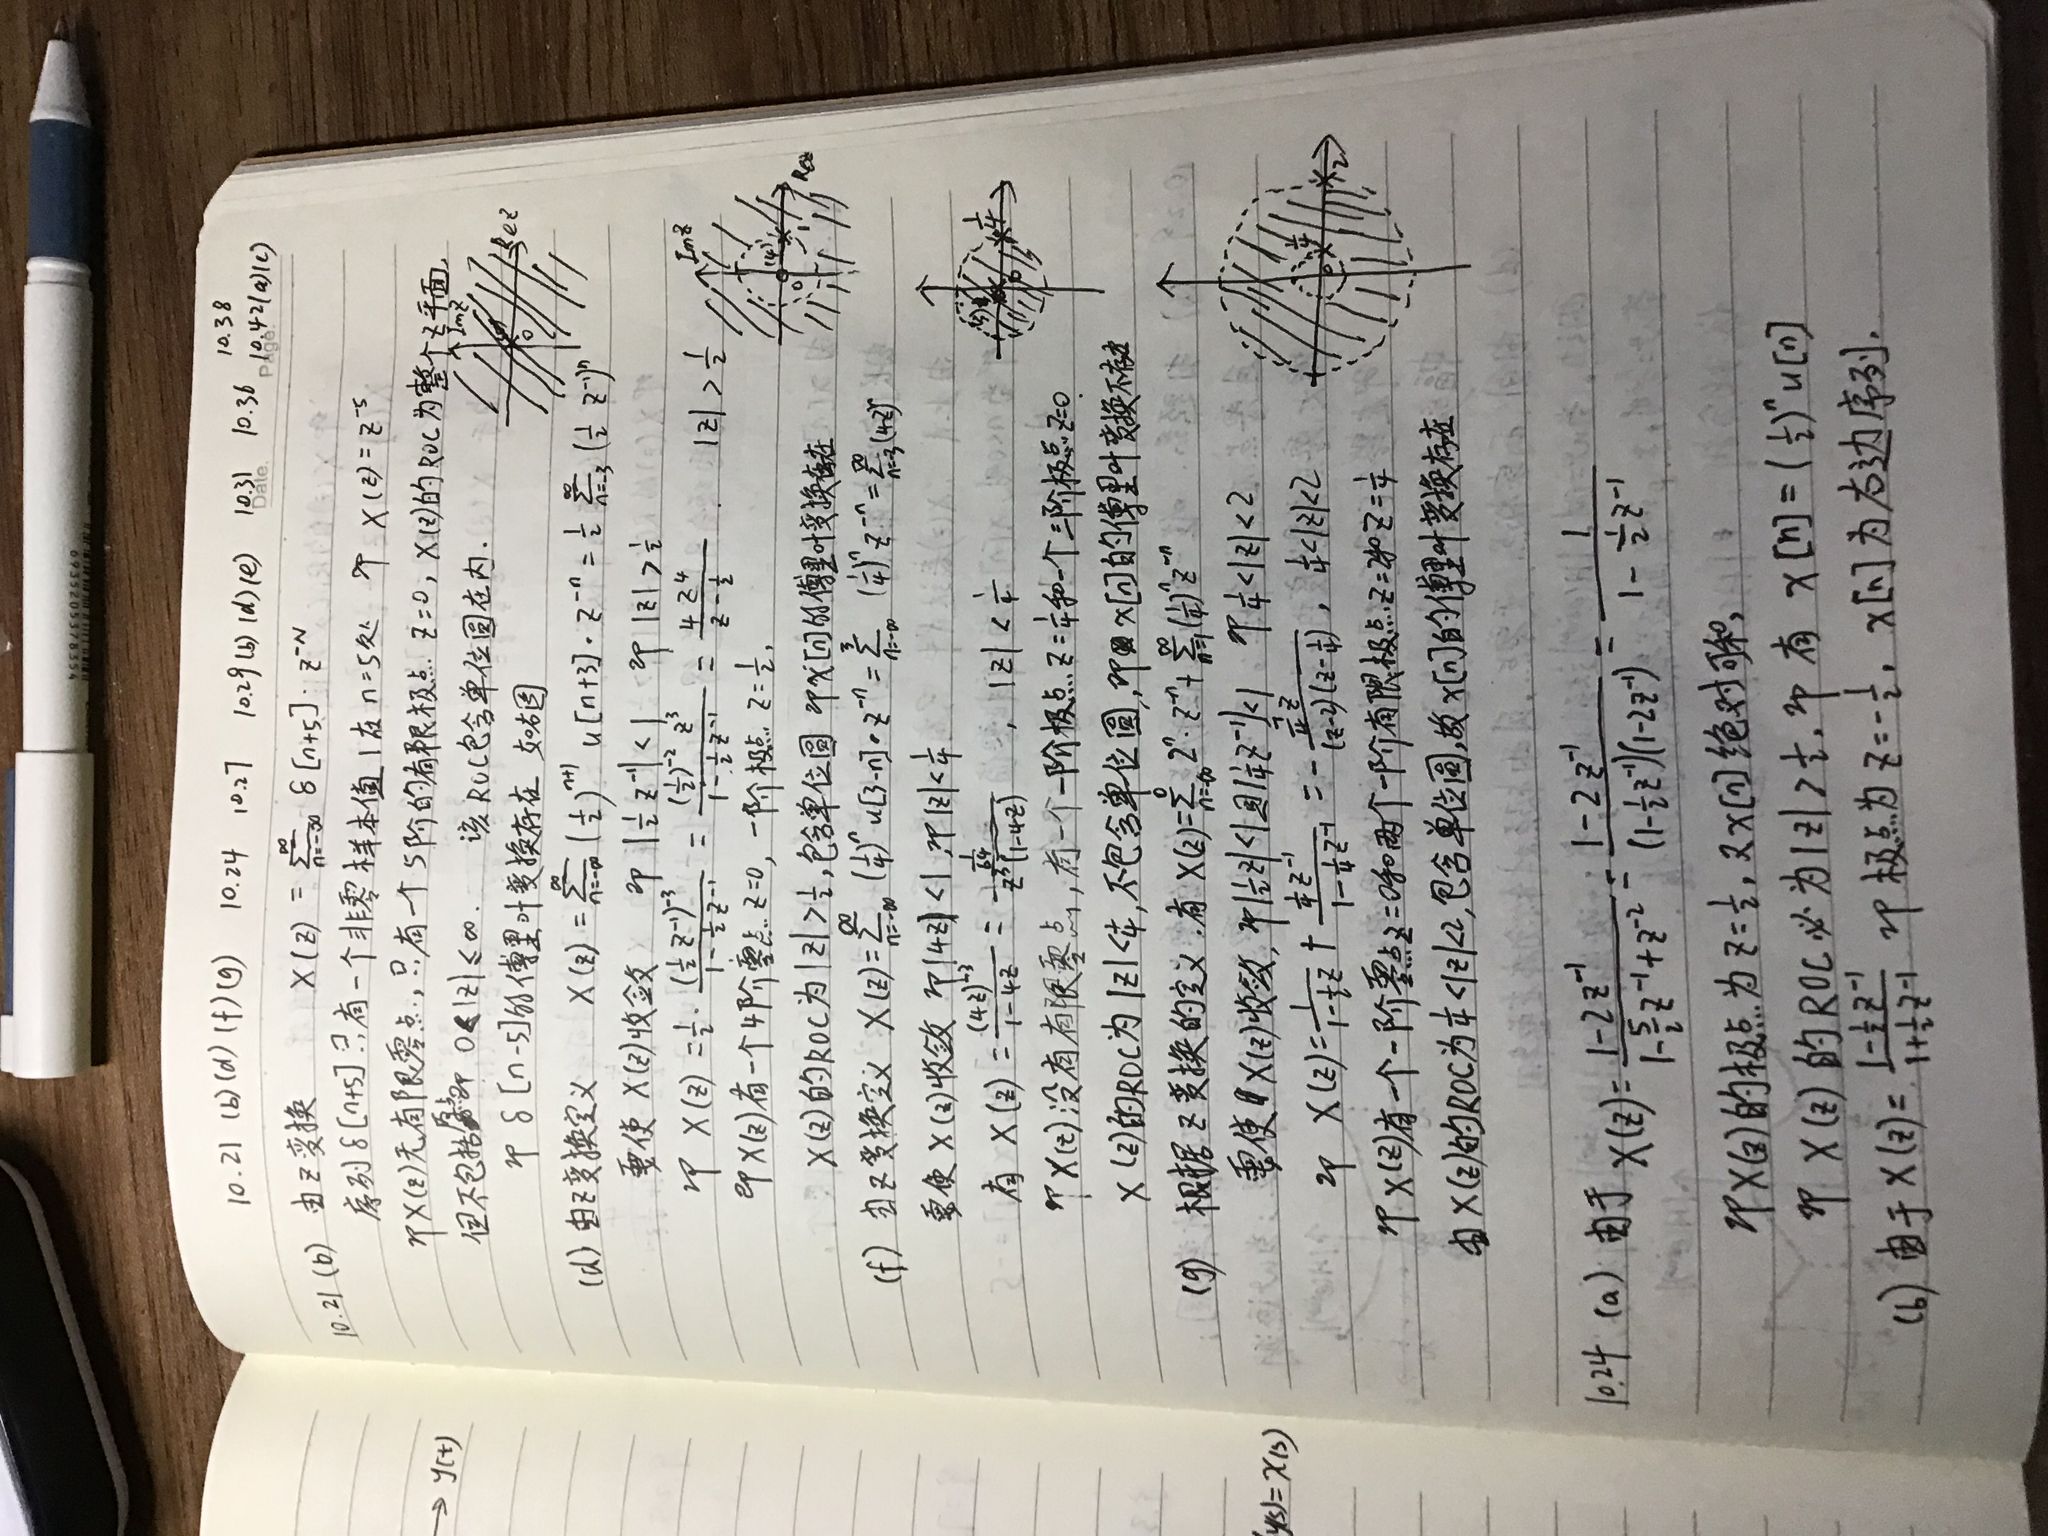 6935205378354
10.21 (b)(d)(f)(g) 10.24 10.27 10.29(b)(d)(e) 10.31 10.36 10.38
10.42(a)(c)
Date. Page.
10.21 (b) 由Z变换 X(z) = ∑_{n=-∞}^{∞} δ[n+5]·z^{-N}
序列δ[n+5]只有一个非零样本值1在n=5处 即 X(z)=z^{-5}
即X(z)无有限零点,只有一个5阶的有限极点z=0,X(z)的ROC为整个z平面,
但不包括原点即 0<|z|≤∞. 该ROC包含单位圆在内.
即 δ[n-5]的傅里叶变换存在 如右图
Imz
Rez
0
(d) 由Z变换定义 X(z) = ∑_{n=-∞}^{∞} (1/2)^{n+1} u[n+3]·z^{-n} = 1/2 ∑_{n=-3}^{∞} (1/2 z^{-1})^n
要使 X(z)收敛 即 |1/2 z^{-1}|<1 即 |z|>1/2
即 X(z) = 1/2 · (1/2 z^{-1})^{-3}/(1-1/2 z^{-1}) = (1/2)^{-2} z^3/(1-1/2 z^{-1}) = 4z^4/(z-1/2) . |z|>1/2
即X(z)有一个4阶零点z=0,一阶极点z=1/2,
X(z)的ROC为|z|>1/2,包含单位圆 即x[n]的傅里叶变换存在
Imz
(4)
0
1
Rez
(f) 由Z变换定义 X(z)=∑_{n=-∞}^{∞} (1/4)^n u[3-n]·z^{-n} = ∑_{n=-∞}^{3} (1/4)^n z^{-n} = ∑_{n=-3}^{∞} (4z)^n
要使X(z)收敛 即|4z|<1,即|z|<1/4
有 X(z) = (4z)^{-3}/(1-4z) = (1/64)/(z^3(1-4z)) , |z|<1/4
即X(z)没有有限零点,有一个一阶极点z=1/4和一个三阶极点z=0
X(z)的ROC为|z|<1/4,不包含单位圆,即x[n]的傅里叶变换不存在
1/4
0
(g) 根据Z变换的定义.有 X(z)=∑_{n=-∞}^{0} 2^n·z^{-n}+∑_{n=1}^{∞}(1/4)^n z^{-n}
要使X(z)收敛,即|1/2 z|<1且|1/4 z^{-1}|<1 即1/4<|z|<2
即 X(z)=1/(1-1/2 z) + (1/4 z^{-1})/(1-1/4 z^{-1}) = -(7/4 z)/((z-2)(z-1/4)), 1/4<|z|<2
即X(z)有一个一阶零点z=0和两个一阶有限极点z=2和z=1/4
由X(z)的ROC为1/4<|z|<2,包含单位圆,故x[n]的傅里叶变换存在
1/4
2
10.24 (a) 由于 X(z)= (1-2z^{-1})/(1-5/2 z^{-1}+z^{-2}) = (1-2z^{-1})/((1-1/2 z^{-1})(1-2z^{-1})) = 1/(1-1/2 z^{-1})
即X(z)的极点为z=1/2,又x[n]绝对可和,
即 X(z)的ROC必为|z|>1/2,即有 x[n]=(1/2)^n u[n]
(b) 由于X(z)= (1-1/2 z^{-1})/(1+1/2 z^{-1}) 即 极点为z=-1/2, x[n]为右边序列.
→ y(t)
y(s)=X(s)